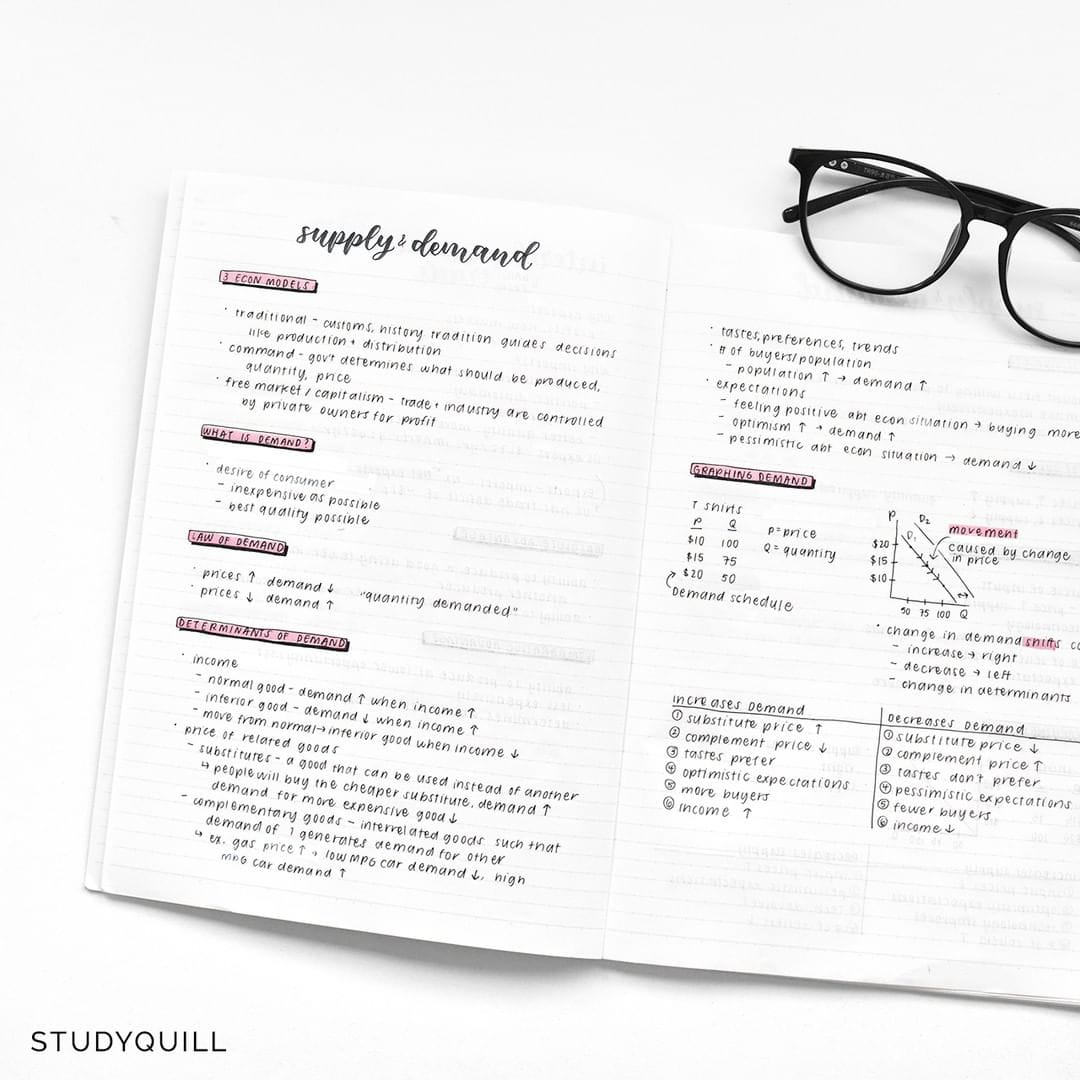 supply & demand
3 ECON MODELS
· traditional - customs, history tradition guides decisions
like production + distribution
· command - gov't determines what should be produced,
quantity, price
· free market / capitalism - trade + industry are controlled
by private owners for profit
WHAT IS DEMAND?
· desire of consumer
- inexpensive as possible
- best quality possible
LAW OF DEMAND
· prices ↑ demand ↓
· prices ↓ demand ↑ "quantity demanded"
DETERMINANTS OF DEMAND
· income
- normal good - demand ↑ when income ↑
- inferior good - demand ↓ when income ↑
- move from normal → inferior good when income ↓
· price of related goods
- substitutes - a good that can be used instead of another
↳ people will buy the cheaper substitute, demand ↑
demand for more expensive good ↓
- complementary goods - interrelated goods such that
demand of 1 generates demand for other
↳ ex. gas price ↑ → low MPG car demand ↓, high
MPG car demand ↑
· tastes, preferences, trends
· # of buyers/population
- population ↑ → demand ↑
· expectations
- feeling positive abt econ situation → buying more
- optimism ↑ → demand ↑
- pessimistic abt econ situation → demand ↓
GRAPHING DEMAND
T shirts
P Q
$10 100
$15 75
$20 50
Demand schedule
P = price
Q = quantity
P
$20
$15
$10
D1
D2
50 75 100 Q
movement
caused by change
in price
· change in demand shifts
- increase → right
- decrease → left
- change in determinants
Increases Demand
① substitute price ↑
② complement price ↓
③ tastes prefer
④ optimistic expectations
⑤ more buyers
⑥ income ↑
Decreases Demand
① substitute price ↓
② complement price ↑
③ tastes don't prefer
④ pessimistic expectations
⑤ fewer buyers
⑥ income ↓
STUDYQUILL